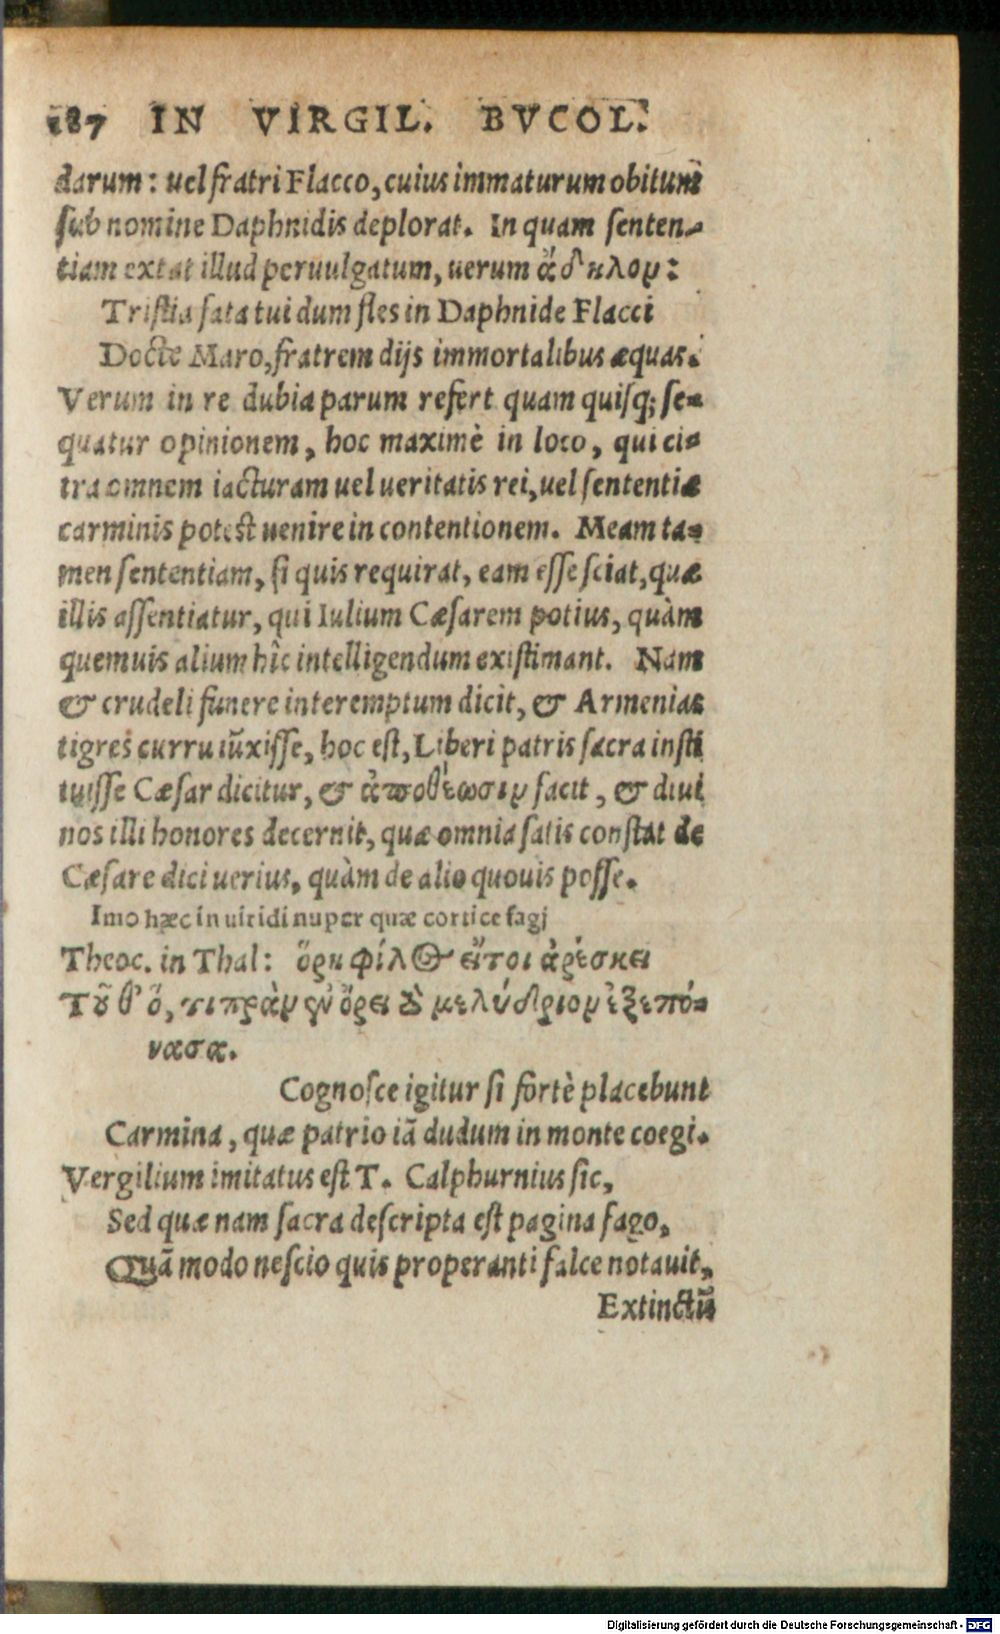 187 IN VIRGIL. BVCOL.
darum: uel fratri Flacco, cuius immaturum obitum
sub nomine Daphnidis deplorat. In quam senten-
tiam extat illud peruulgatum, uerum ἄδηλον:
Tristia fata tui dum fles in Daphnide Flacci
Docte Maro, fratrem dijs immortalibus æquas.
Verum in re dubia parum refert quam quisq; se-
quatur opinionem, hoc maximè in loco, qui ci-
tra omnem iacturam uel ueritatis rei, uel sententiæ
carminis potest uenire in contentionem. Meam ta-
men sententiam, si quis requirat, eam esse sciat, quæ
illis assentiatur, qui Iulium Cæsarem potius, quàm
quemuis alium hîc intelligendum existimant. Nam
& crudeli funere interemptum dicit, & Armenias
tigres curru iūxisse, hoc est, Liberi patris sacra insti
tuisse Cæsar dicitur, & ἀποθέωσιν facit, & diui
nos illi honores decernit, quæ omnia satis constat de
Cæsare dici uerius, quàm de alio quouis posse.
Imo hæc in uiridi nuper quæ cortice fagj
Theoc. in Thal: ὅρη φίλος εἴτοι ἀρέσκει
Τοῦθ' ὅ, τι πρὰν ἐν ὄρει τὸ μελύδριον ἐξεπό-
νασα.
Cognosce igitur si fortè placebunt
Carmina, quæ patrio iā dudum in monte coegi.
Vergilium imitatus est T. Calphurnius sic,
Sed quæ nam sacra descripta est pagina fago,
Quā modo nescio quis properanti falce notauit,
Extinctū
Digitalisierung gefördert durch die Deutsche Forschungsgemeinschaft - DFG